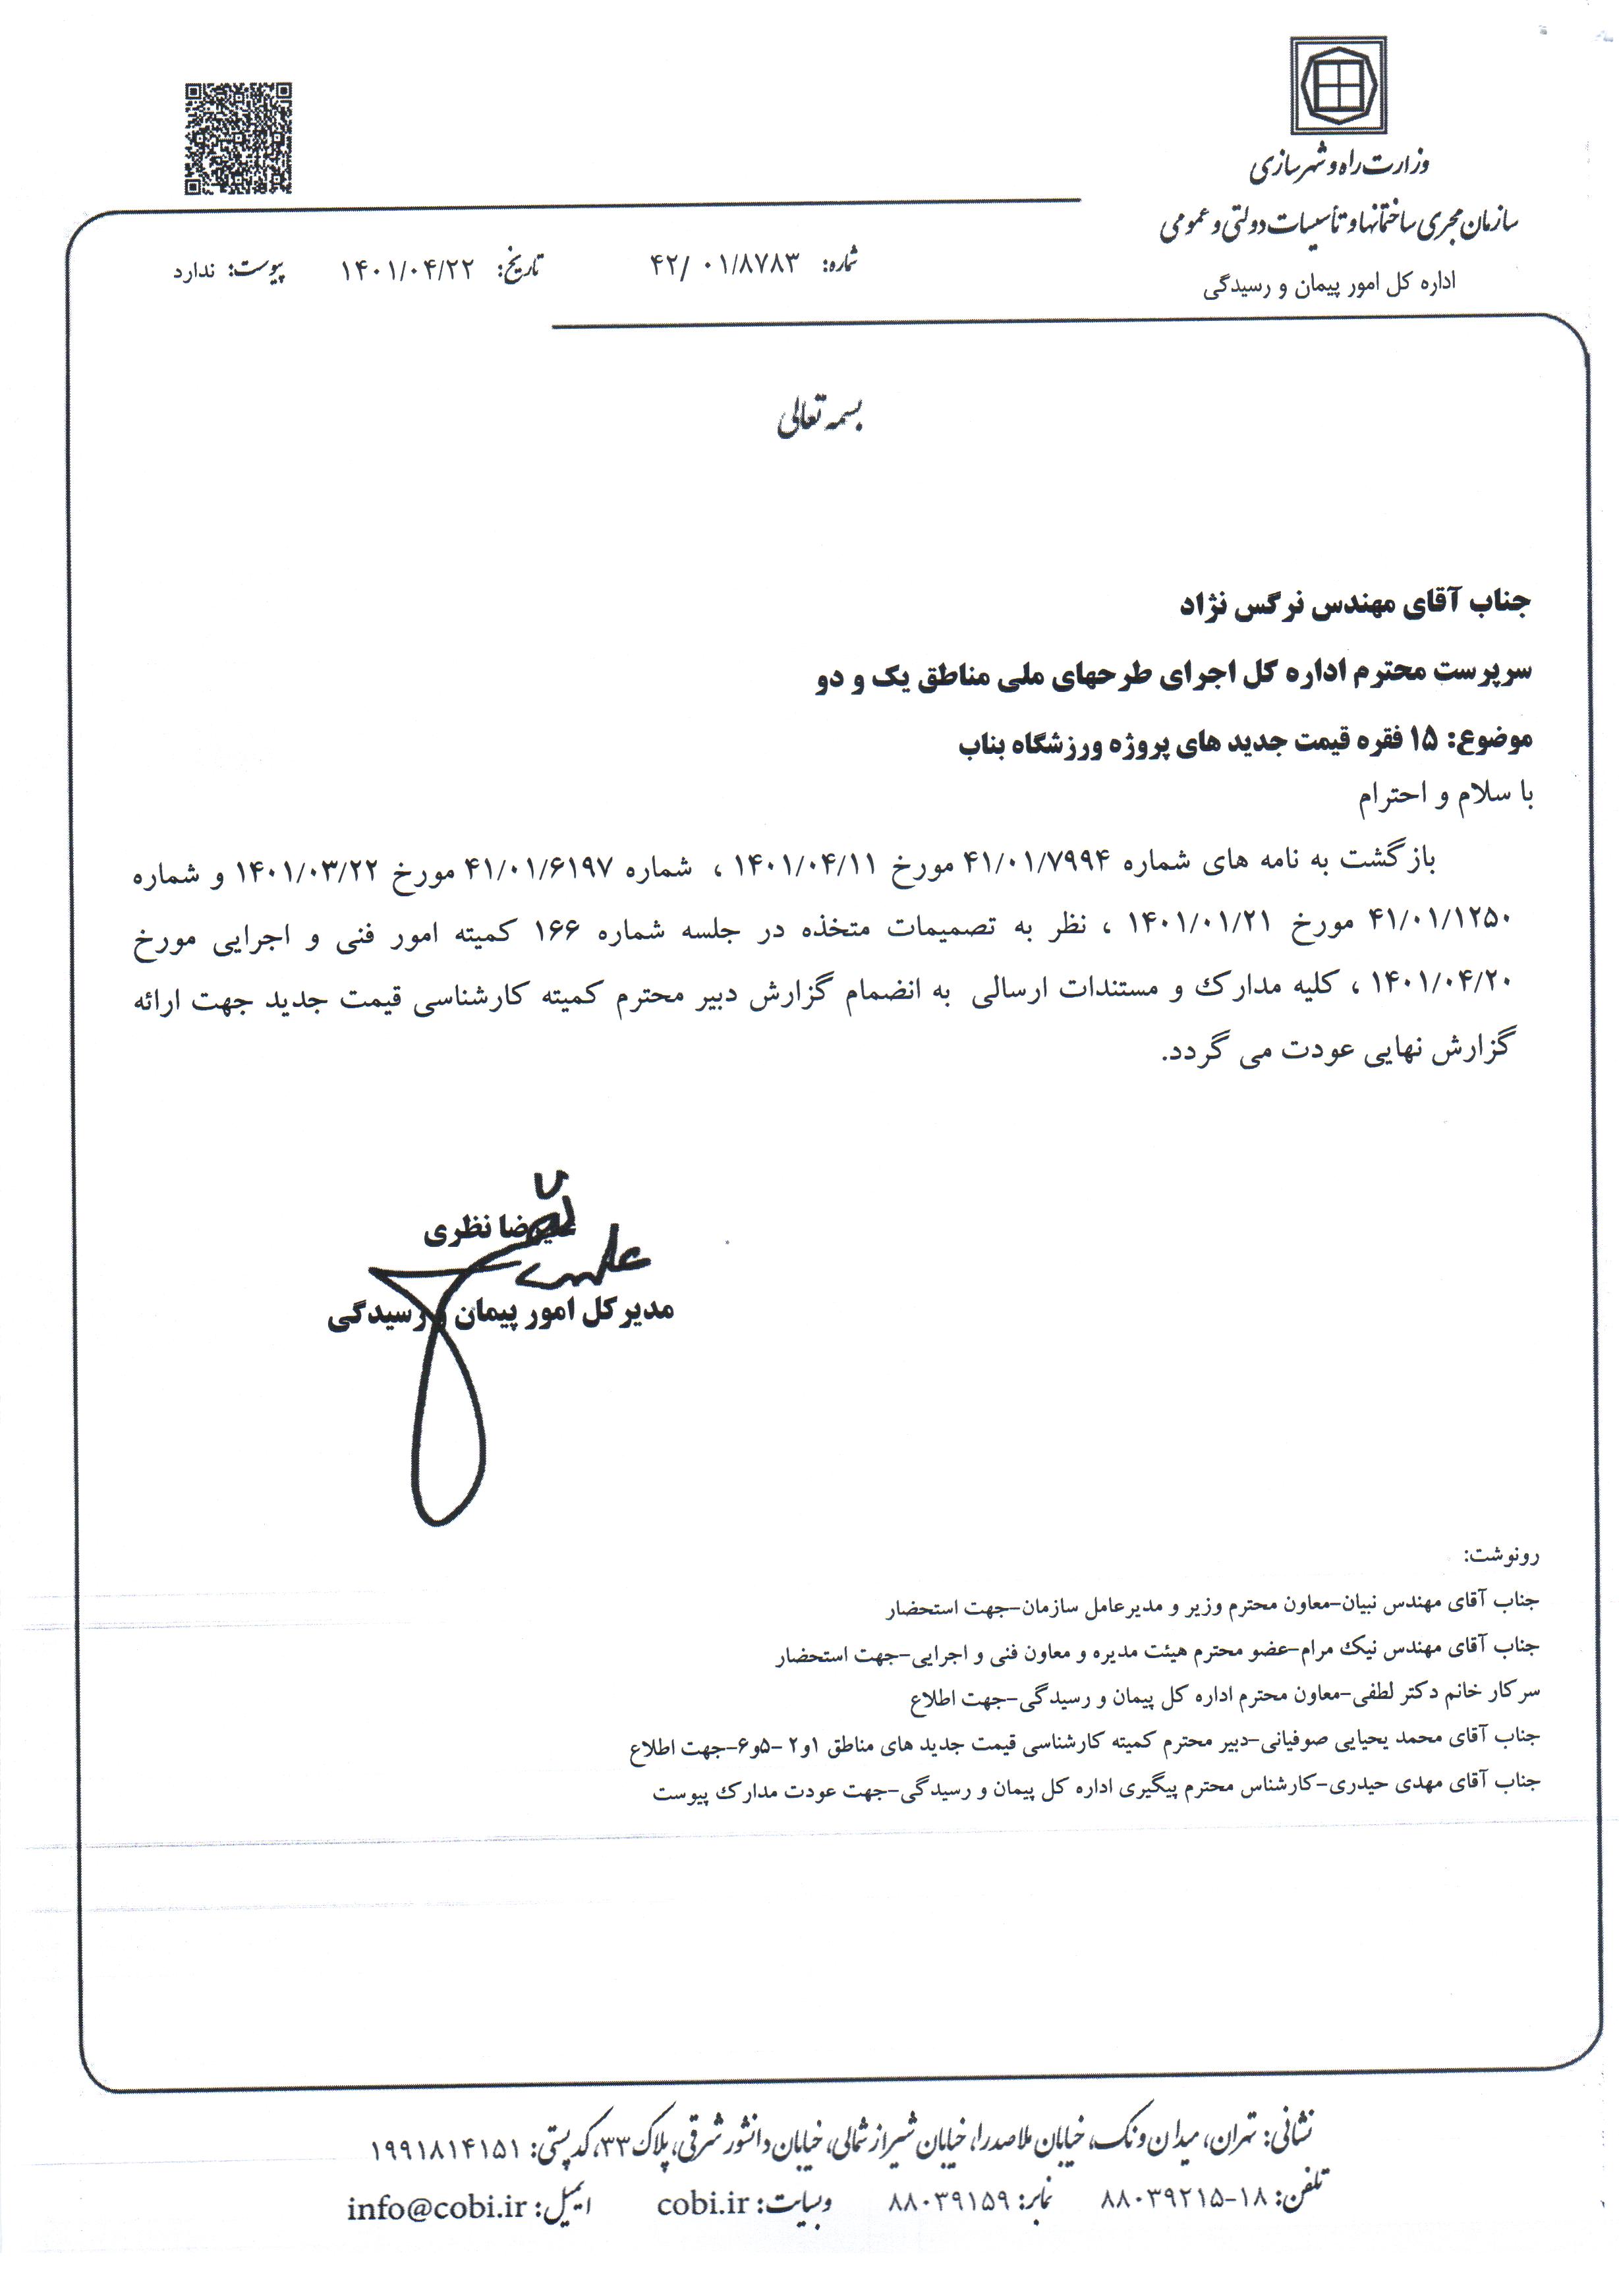 وزارت راه و شهرسازی
سازمان مجری ساختمانها و تأسیسات دولتی و عمومی
اداره کل امور پیمان و رسیدگی
شماره: ۴۲/ ۰۱/۸۷۸۳
تاریخ: ۱۴۰۱/۰۴/۲۲
پیوست: ندارد
بسمه تعالی
جناب آقای مهندس نرگس نژاد
سرپرست محترم اداره کل اجرای طرحهای ملی مناطق یک و دو
موضوع: ۱۵ فقره قیمت جدید های پروژه ورزشگاه بناب
با سلام و احترام
بازگشت به نامه های شماره ۴۱/۰۱/۷۹۹۴ مورخ ۱۴۰۱/۰۴/۱۱ ، شماره ۴۱/۰۱/۶۱۹۷ مورخ ۱۴۰۱/۰۳/۲۲ و شماره
۴۱/۰۱/۱۲۵۰ مورخ ۱۴۰۱/۰۱/۲۱ ، نظر به تصمیمات متخذه در جلسه شماره ۱۶۶ کمیته امور فنی و اجرایی مورخ
۱۴۰۱/۰۴/۲۰ ، کلیه مدارک و مستندات ارسالی به انضمام گزارش دبیر محترم کمیته کارشناسی قیمت جدید جهت ارائه
گزارش نهایی عودت می گردد.
علیرضا نظری
مدیرکل امور پیمان و رسیدگی
رونوشت:
جناب آقای مهندس نبیان-معاون محترم وزیر و مدیرعامل سازمان-جهت استحضار
جناب آقای مهندس نیک مرام-عضو محترم هیئت مدیره و معاون فنی و اجرایی-جهت استحضار
سرکار خانم دکتر لطفی-معاون محترم اداره کل پیمان و رسیدگی-جهت اطلاع
جناب آقای محمد یحیایی صوفیانی-دبیر محترم کمیته کارشناسی قیمت جدید های مناطق ۱و۲ -۵و۶-جهت اطلاع
جناب آقای مهدی حیدری-کارشناس محترم پیگیری اداره کل پیمان و رسیدگی-جهت عودت مدارک پیوست
نشانی: تهران، میدان ونک، خیابان ملاصدرا، خیابان شیراز شمالی، خیابان دانشور شرقی، پلاک ۳۳، کد پستی: ۱۹۹۱۸۱۴۱۵۱
تلفن: ۱۸-۸۸۰۳۹۲۱۵ نمابر: ۸۸۰۳۹۱۵۹ وبسایت: cobi.ir ایمیل: info@cobi.ir